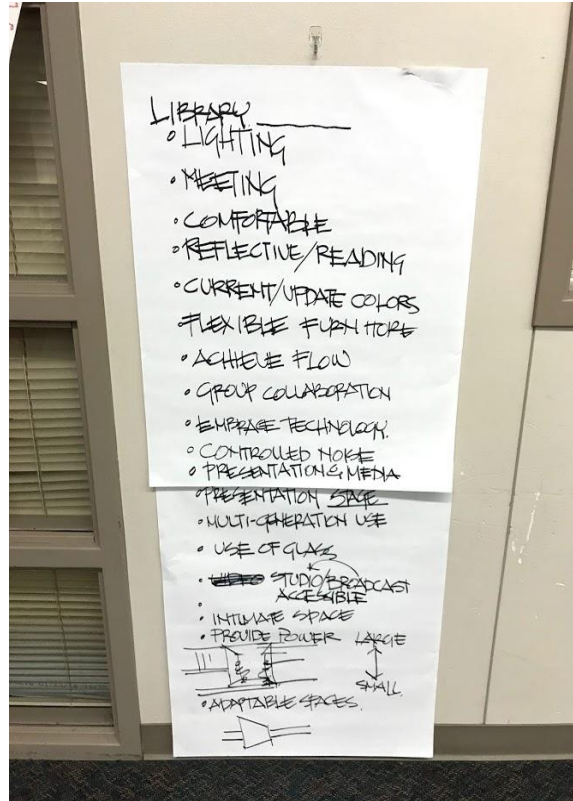 LIBRARY
• LIGHTING
• MEETING
• COMFORTABLE
• REFLECTIVE/READING
• CURRENT/UPDATE COLORS
• FLEXIBLE FURNITURE
• ACHIEVE FLOW
• GROUP COLLABORATION
• EMBRACE TECHNOLOGY.
• CONTROLLED NOISE
• PRESENTATIONS, MEDIA
• PRESENTATION STAGE
• MULTI-GENERATION USE
• USE OF GLASS
• STUDIO/BROADCAST
ACCESSIBLE
•
• INTIMATE SPACE
• PROVIDE POWER LARGE
SMALL
• ADAPTABLE SPACES.